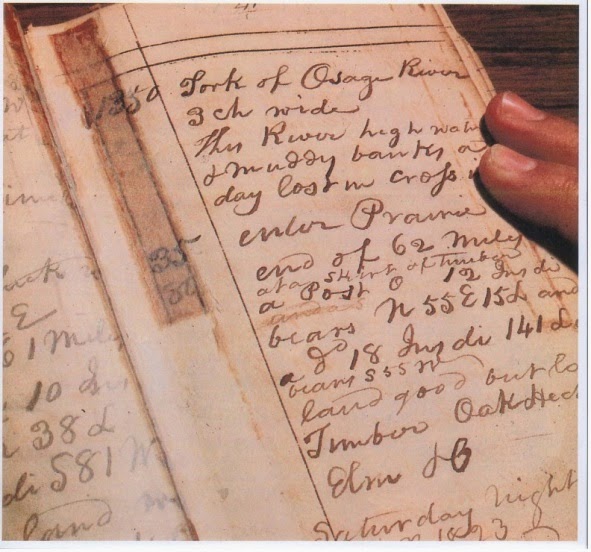 Fork of Osage River
11350
3 ch wide
This River high wat
& muddy banks a
day lost in cross i
enter Prairie
35
end of 62 Mile
at a skirt of timber
30
a Post 12 Ins di
bears N 55 E 15 L and
a do 18 Ins di 141 L
bears S 55 W
land good but lo
Timber Oak
Elm & B
Saturday night
E
61 Mile
10 Ins
38 L
di 581
land